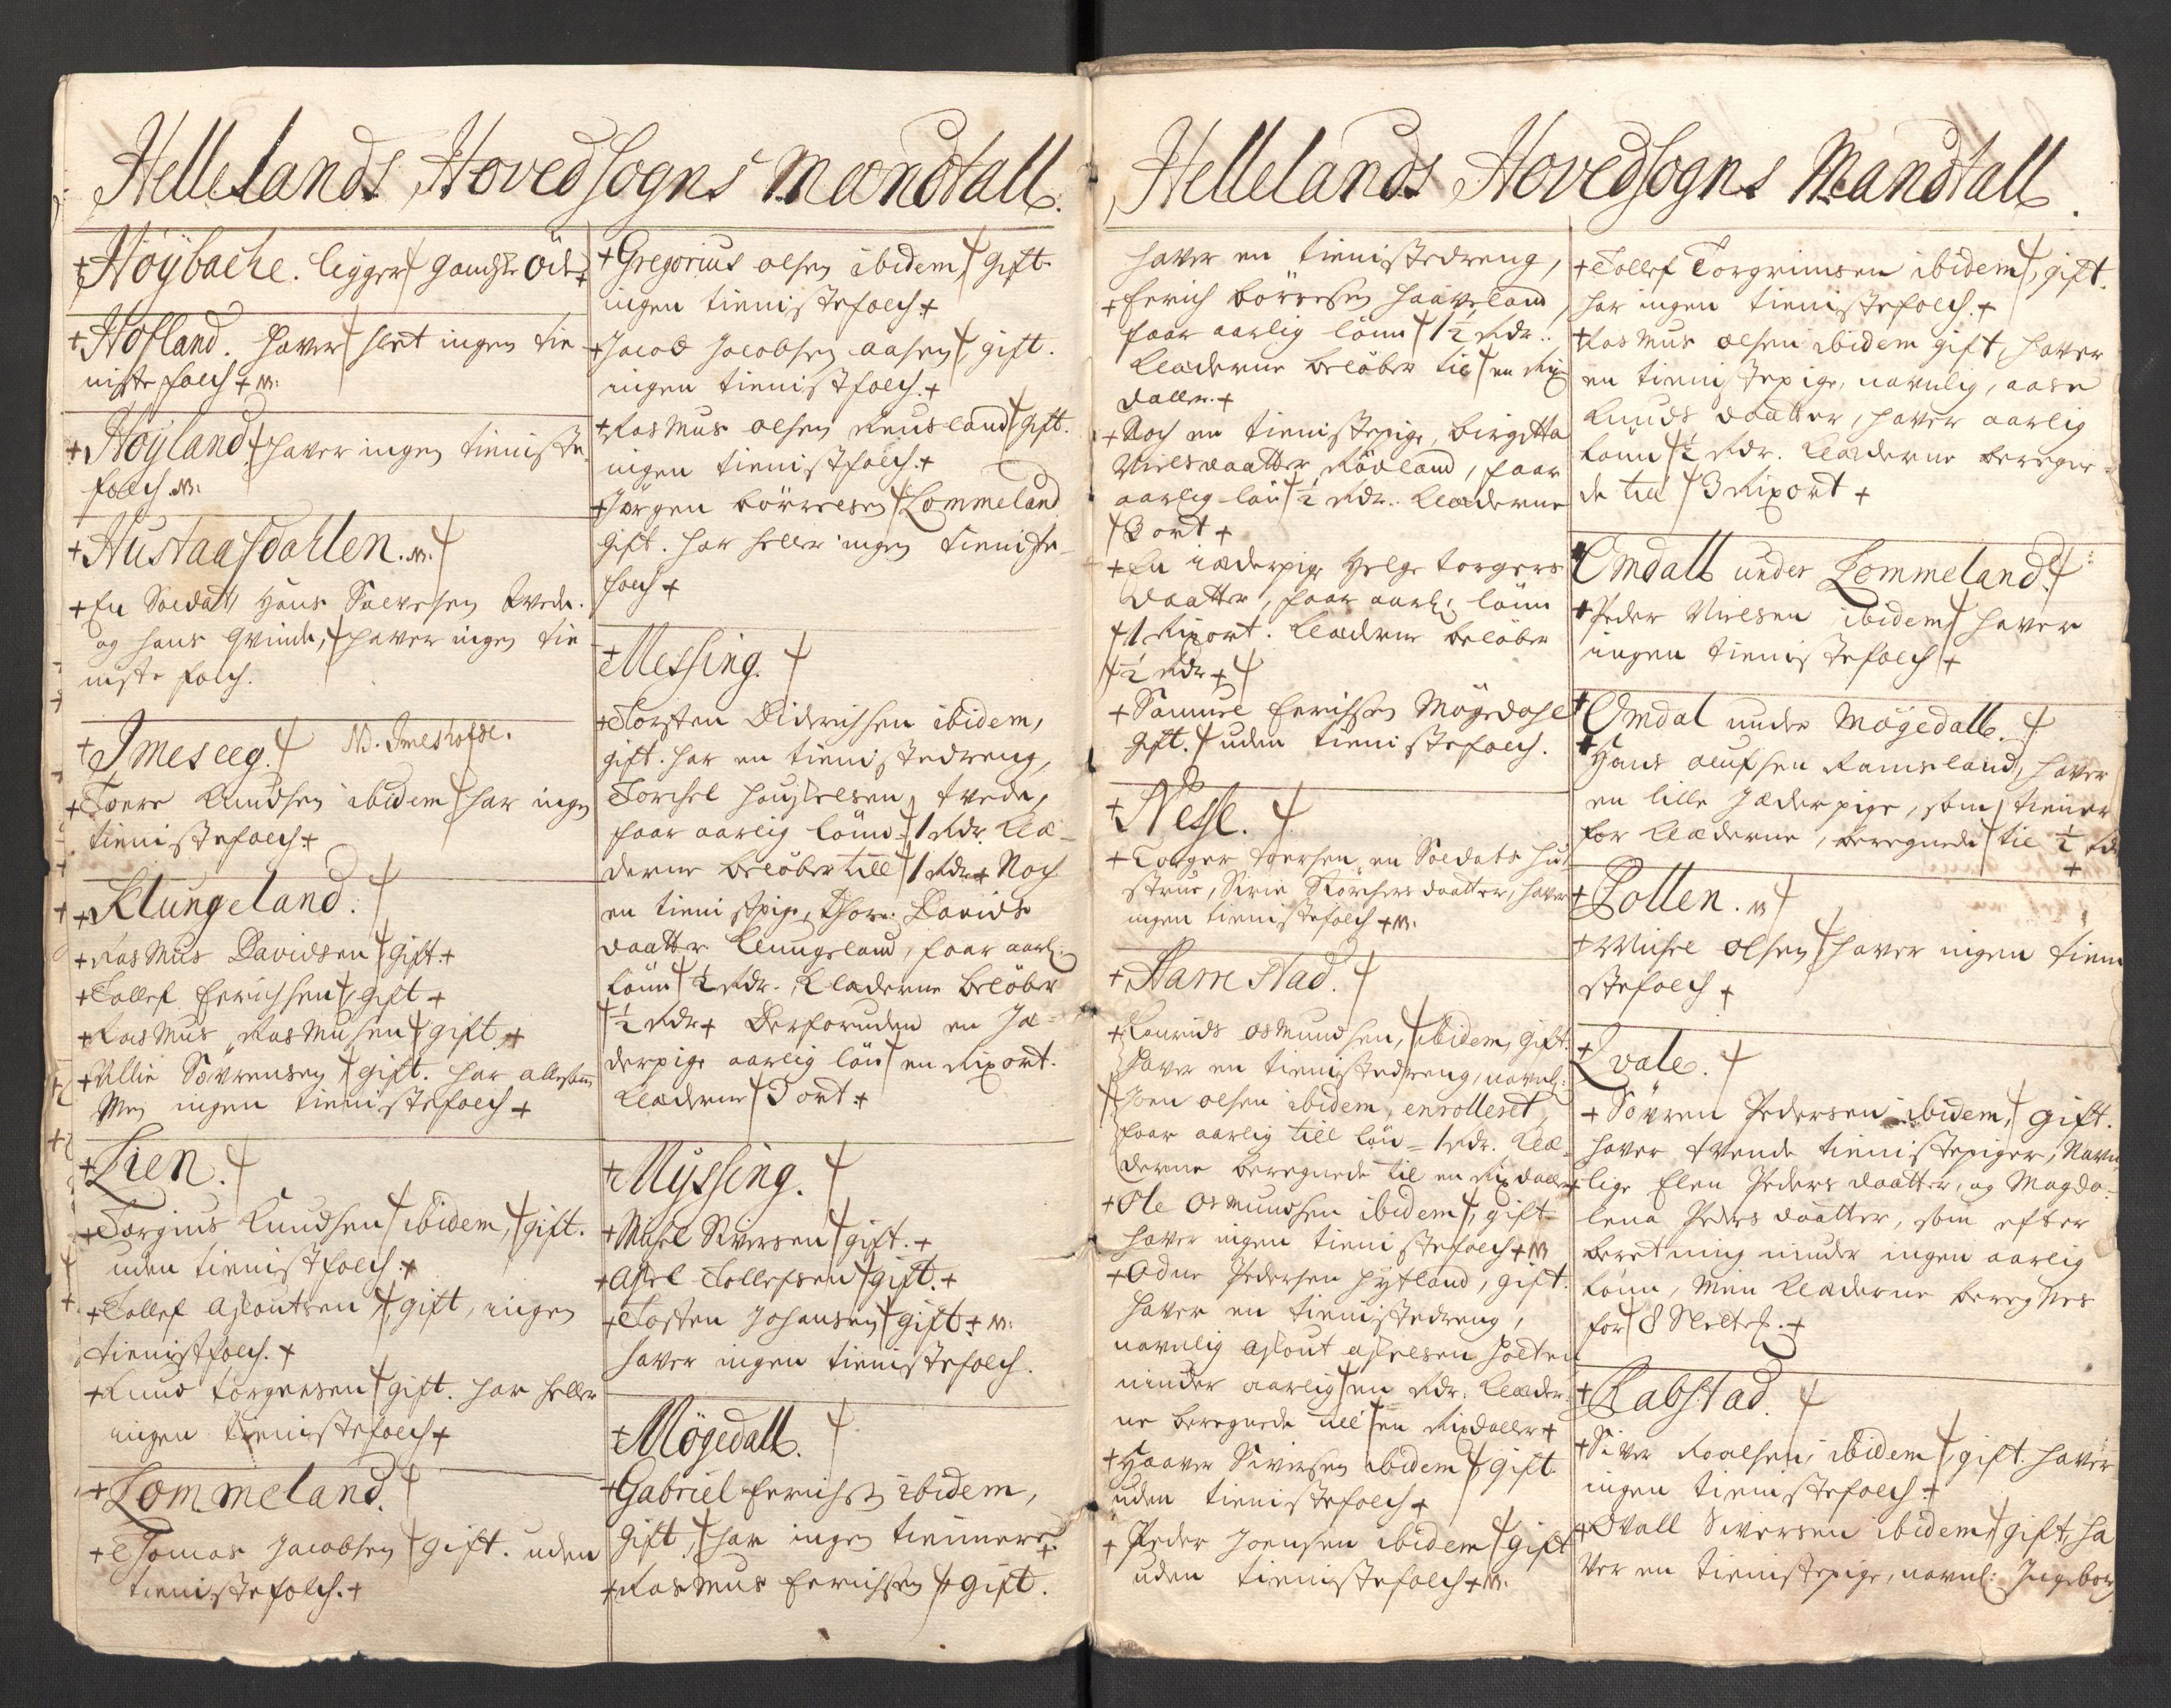 Hellelands Hovedsogns Mandtall.
+Höybache. ligger gandsk öde+
+Hofland. haver slet ingen tie
niste folch + NB:
+Höyland haver ingen tieniste
folch. NB:
+Hustaasdahlen. NB.
+En Soldatt Hans Salvesen Tvede.
og hans qvinde, haver ingen tie
niste folch.
+Imeseeg. NB. Imeshofde.
+Toere Knudsen ibidem har ingen
tienistefolch+
+Klungeland.
+Rasmus Davidsen gift.+
+Tollef Erichsen, gift+
+Rasmus Rasmusen gift+
+Villie Sövrensen gift. har allesam
Men ingen tienistefolch+
+Lien.
+Torgius Knudsen ibidem, gift.
uden tienistfolch+
+Tollef Asloutsen, gift, ingen
tienistfolch.+
+Knud Torgersen gift. har heller
ingen tienistefolch+
+Lommeland.
+Thomas Jacobsen gift. uden
tienistefolch.+
+Gregorius olsen ibidem, gift
ingen tienistefolch+
+Jacob Jacobsen Aasen, gift.
ingen tienistfolch.+
+Rasmus olsen Reusland gift.
ingen tienistfolch.+
+Jörgen börresen Lommeland
gift. har heller ingen tieniste-
folch+
+Messing.
+Torsten Didrichsen ibidem,
gift. har en tienistedreng,
Torchel tvede,
faar aarlig lönn 1 Rdr. Klæ-
derne belöber till 1 Rdr+ Noch
en tienistpige, Thore Davids
daatter Klungeland, faar aarl:
lönn ½ Rdr. Klæderne belöber
½ Rdr+ Derforuden en Jæ-
derpige aarlig lön en Rixort.
Klæderne 3 ort+
+Myssing.
+Michel Siversen gift.+
+Assel Tollefsen gift.+
+Tosten Johansen gift+ NB:
haver ingen tienistefolch.
+Mögedall.
+Gabriel Erichsen ibidem,
gift, har ingen tiennere+
+Rasmus Erichsen gift.
Hellelands Hovedsogns Mandtall.
haver en tienistedreng,
+Erich börresen Haaveland,
faar aarlig lönn 1½ Rdr.
Klæderne belöber til en Rix
daller.+
+Noch en tienistepige, Birgitta
Nielsdaatter Rödland, faar
aarlig lön ½ Rdr. Klæderne
3 ort+
+En iæderpige Helge torgers
daatter, faar aarl: lönn
1 Rixort. Klæderne belöber
½ Rdr+
+Samuel Erichsen Mögedahl
gift. uden tienistefolch.
+Nesse.
+Torger toersen, en Soldats hu
strue, Sirie daatter, haver
ingen tienistefolch+ NB:
+Harrestad.
+Laurids osmundsen, ibidem, gift.
haver en tienistedreng, navnl:
Joen olsen ibidem, enrolleret,
faar aarlig till lön = 1 Rdr. Klæ
derne beregnede til en Rixdaller+
+Ole osmundsen ibidem, gift
haver ingen tienistefolch+ NB
+Odne Pedersen Hytland, gift.
haver en tienistedreng,
navnlig Aslout Holten
ninder aarlig en Rdr: Klæder
ne beregnede till en Rixdaller+
+Haaver Siversen ibidem, gift.
uden tienistefolch+
+Peder Joensen ibidem gift
uden tienistefolch+ NB:
+Tollef Torgrimsen ibidem, gift.
har ingen tienistefolch.+
+Rasmus olsen ibidem gift, haver
en tienistepige, navnlig, Aase
Knuds daatter, haver aarlig
lönn ½ Rdr. Klæderne beregne-
de till 3 Rixort+
+Omdall under Lommeland:
+Peder Nielsen ibidem haver
ingen tienistefolch+
+Omdal under Mögedall.
+Hans olufsen Ramsland, haver
en lille Jæderpige, som tiener
for Klæderne, beregnede til ½ Rdr
+
+Pollen. NB
+Michel olsen haver ingen tieni
stefolch+
+Qvale.
+Sövren Pedersen ibidem, gift.
haver tvende tienistepiger, Navn
lige Elen Peders daatter, og Magda-
lena Peders daatter, som efter
beretning ninder ingen aarlig
lönn, Men Klæderne beregnes
for 8 +
+Rabstad.
+Siver Roalsen, ibidem, gift. haver
ingen tienistefolch+
+Ovall Siversen ibidem gift, ha
ver en tienistepige, navnl: Ingebor